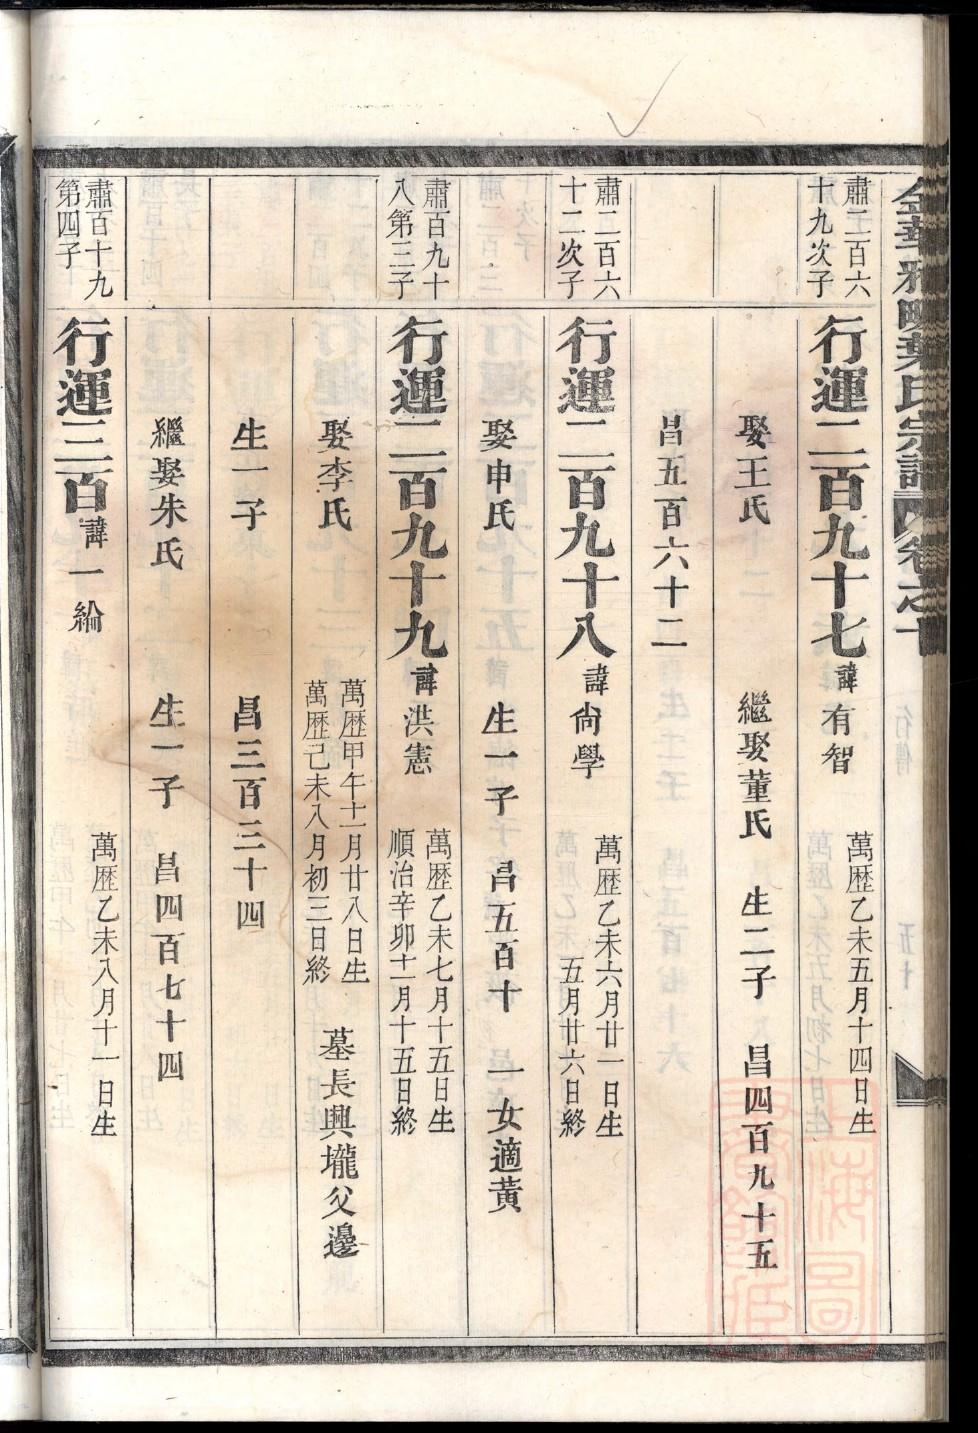 金華雅畈葉氏宗譜 卷之十
肅二百六
十九次子
行運二百九十七 諱有智
萬歷乙未五月十四日生
娶王氏 繼娶董氏 生二子 昌四百九十五
昌五百六十二
肅二百六
十二次子
行運二百九十八 諱尙學
萬歷乙未六月廿一日生
五月廿六日終
娶申氏 生一子 昌五百十 一女適黃
肅百九十
八第三子
行運二百九十九 諱洪憲
萬歷乙未七月十五日生
順治辛卯十一月十五日終
娶李氏
萬歷甲午十一月廿八日生
萬歷己未八月初三日終
墓長興壠父邊
生一子 昌三百三十四
繼娶朱氏 生一子 昌四百七十四
肅百十九
第四子
行運三百 諱一綸
萬歷乙未八月十一日生
上海圖
書館藏